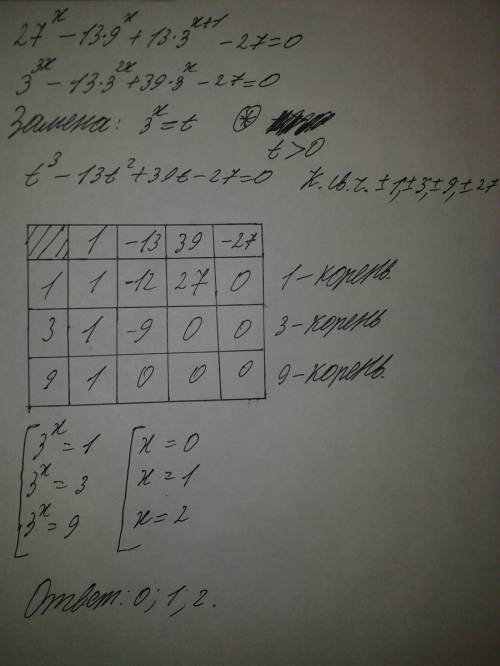 27^x − 13·9^x + 13·3^(x+1) − 27=0
3^(3x) − 13·3^(2x) + 39·3^x − 27=0
Замена: 3^x = t ⊛
t>0
t^3 − 13t^2 + 39t − 27=0 К. св. ч. ±1; ±3; ±9; ±27
1 −13 39 −27
1 1 −12 27 0 1-корень.
3 1 −9 0 0 3-корень
9 1 0 0 0 9-корень.
3^x = 1 x = 0
3^x = 3 x = 1
3^x = 9 x = 2
Ответ: 0; 1; 2.